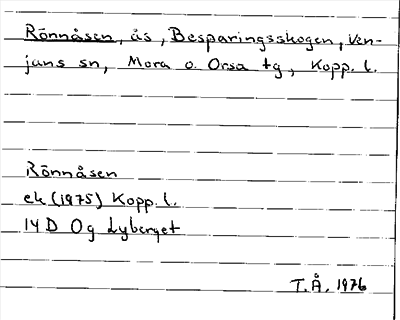 Rönnåsen, ås, Besparingsskogen, Ven-
jans sn, Mora o. Orsa tg, Kopp. l.
Rönnåsen
ek (1975) Kopp. l.
14D Og Lyberget
T.Å. 1976